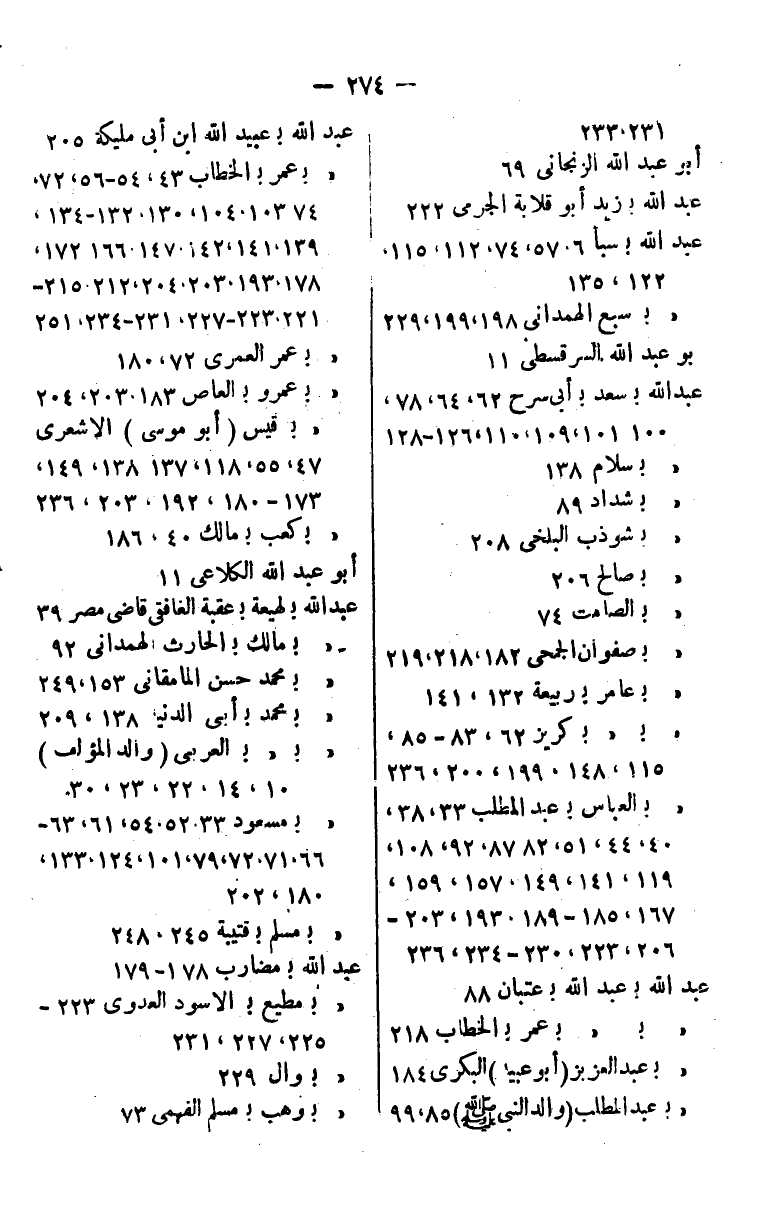 – ٢٧٤ –
٢٣١،٢٣٣
أبو عبد الله الزنجانى ٦٩
عبد الله بـ زيد أبو قلابة الجرمى ٢٢٢
عبد الله بـ سبأ ٥٧،٦، ٧٤، ١١٢، ١١٥،
١٢٢ ، ١٣٥
« بـ سبع الهمدانى ١٩٨،١٩٩،٢٢٩
بو عبد الله السرقسطى ١١
عبدالله بـ سعد بـ أبى سرح ٦٢، ٦٤، ٧٨،
١٠٠ ١٠١ ،١٠٩، ١١٠، ١٢٦–١٢٨
« بـ سلام ١٣٨
« بـ شداد ٨٩
« بـ شوذب البلخى ٢٠٨
« بـ صالح ٢٠٦
« بـ الصامت ٧٤
« بـ صفوان الجمحى ١٨٢،٢١٨،٢١٩
« بـ عامر بـ ربيعة ١٣٢ ، ١٤١
« بـ « بـ كريز ٦٢ ، ٨٣ – ٨٥ ،
١١٥ ، ١٤٨ ٠ ١٩٩ ، ٢٠٠ ، ٢٣٦
« بـ العباس بـ عبد المطلب ٣٣، ٣٨،
٤٠، ٤٤، ٥١، ٨٢ ٨٧ ،٩٢، ١٠٨،
١١٩ ، ١٤١ ، ١٤٩ ٠ ١٥٧ ، ١٥٩ ،
١٦٧ ، ١٨٥ – ١٨٩ ٠ ١٩٣ ، ٢٠٣ –
٢٠٦ ، ٢٢٣ ، ٢٣٠ – ٢٣٤ ، ٢٣٦
عبد الله بـ عبد الله بـ عتبان ٨٨
« بـ « بـ عمر بـ الخطاب ٢١٨
« بـ عبدالعزيز (أبو عبيد) البكرى ١٨٤
« بـ عبدالمطلب (والد النبى ﷺ) ٨٥، ٩٩
عبد الله بـ عبيد الله ابن أبى مليكة ٢٠٥
« بـ عمر بـ الخطاب ٤٣ ، ٥٤–٥٦ ،٧٢،
٧٤ ١٠٣ ،١٠٤، ١٣٠، ١٣٢–١٣٤ ،
١٣٩،١٤١، ١٤٢، ١٤٧، ١٦٦ ١٧٢ ،
١٧٨،١٩٣،٢٠٣،٢٠٤،٢١٢،٢١٥–
٢٢١،٢٢٣–٢٢٧، ٢٣١–٢٣٤، ٢٥١
« بـ عمر العمرى ٧٢، ١٨٠
« بـ عمرو بـ العاص ١٨٣،٢٠٣، ٢٠٤
« بـ قيس (أبو موسى) الاشعرى
٤٧، ٥٥، ١١٨، ١٣٧ ١٣٨ ، ١٤٩ ،
١٧٣ – ١٨٠ ، ١٩٢ ٠ ٢٠٣ ، ٢٣٦
« بـ كعب بـ مالك ٤٠ ، ١٨٦
أبو عبد الله الكلاعى ١١
عبدالله بـ لهيعة بـ عقبة الغافقى قاضى مصر ٣٩
« بـ مالك بـ الحارث الهمدانى ٩٢
« بـ محمد حسن المامقانى ١٥٣،٢٤٩
« بـ محمد بـ أبى الدنيا ١٣٨ ، ٢٠٩
« بـ « بـ العربى (والد المؤلف)
١٠ ، ١٤ ، ٢٢ ٠ ٢٣ ، ٣٠،
« بـ مسعود ٣٣، ٥٢،٥٤، ٦١، ٦٣–
٦٦،٧١،٧٢، ٧٩، ١٠١، ١٢٤، ١٣٣،
١٨٠ ، ٢٠٢
« بـ مسلم بـ قتيبة ٢٤٥ ، ٢٤٨
عبد الله بـ مضارب ١٧٨ – ١٧٩
« بـ مطيع بـ الاسود العدوى ٢٢٣ –
٢٢٥، ٢٢٧ ، ٢٣١
« بـ وال ٢٢٩
« بـ وهب بـ مسلم الفهمى ٧٣